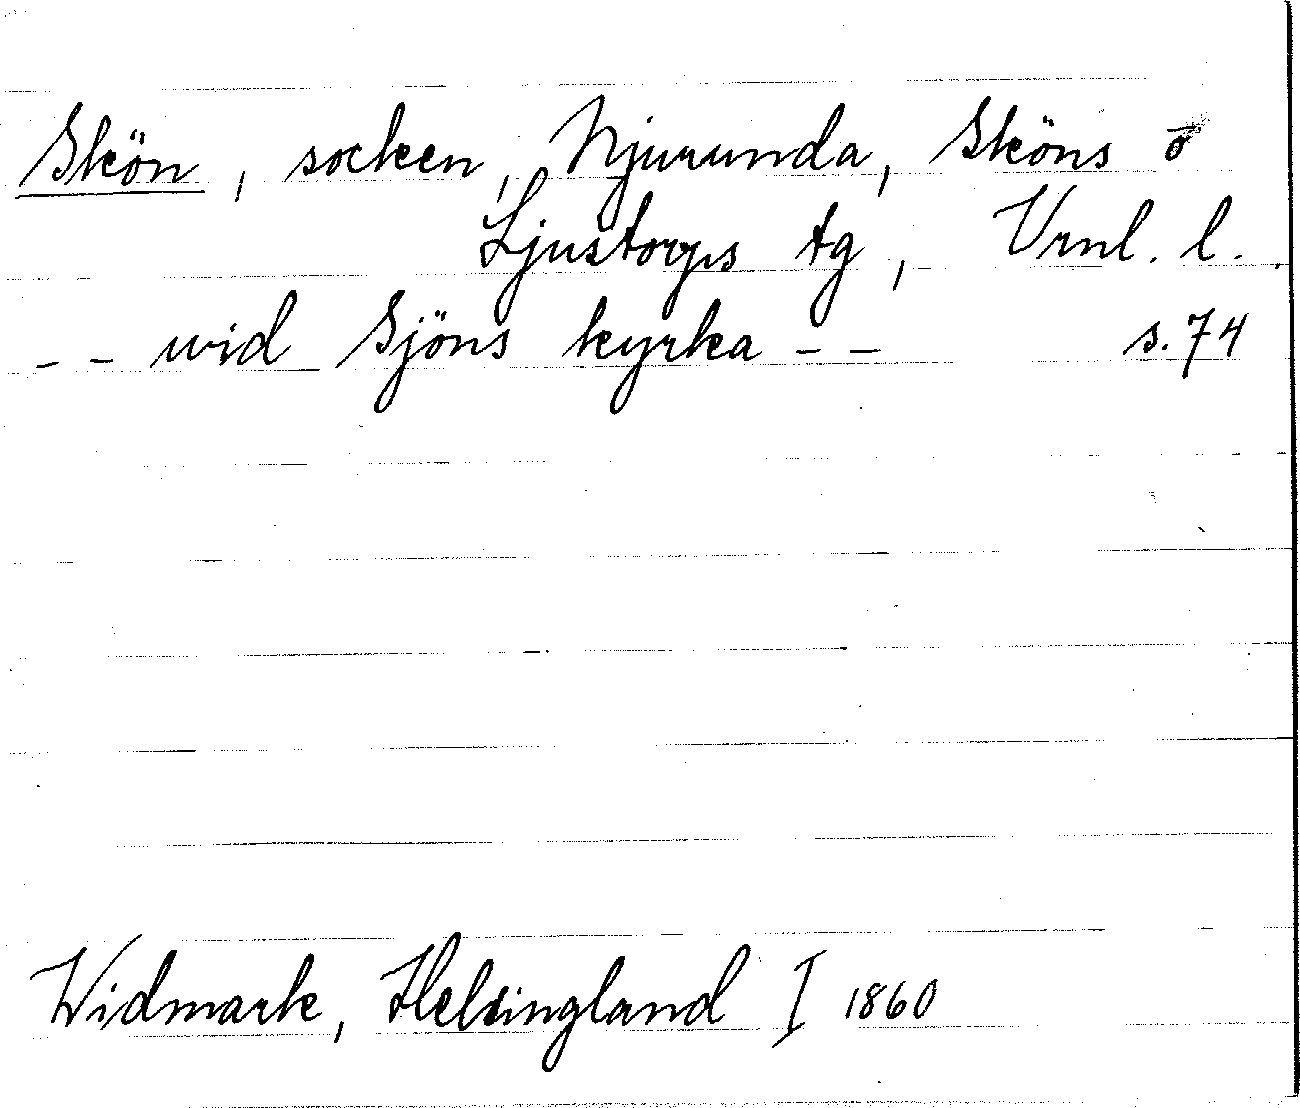 Skön, socken, Njurunda, Sköns o
Ljustorps tg, Vrnl. l.
-- wid Sjöns kyrka -- s.74
Widmark, Helsingland I 1860